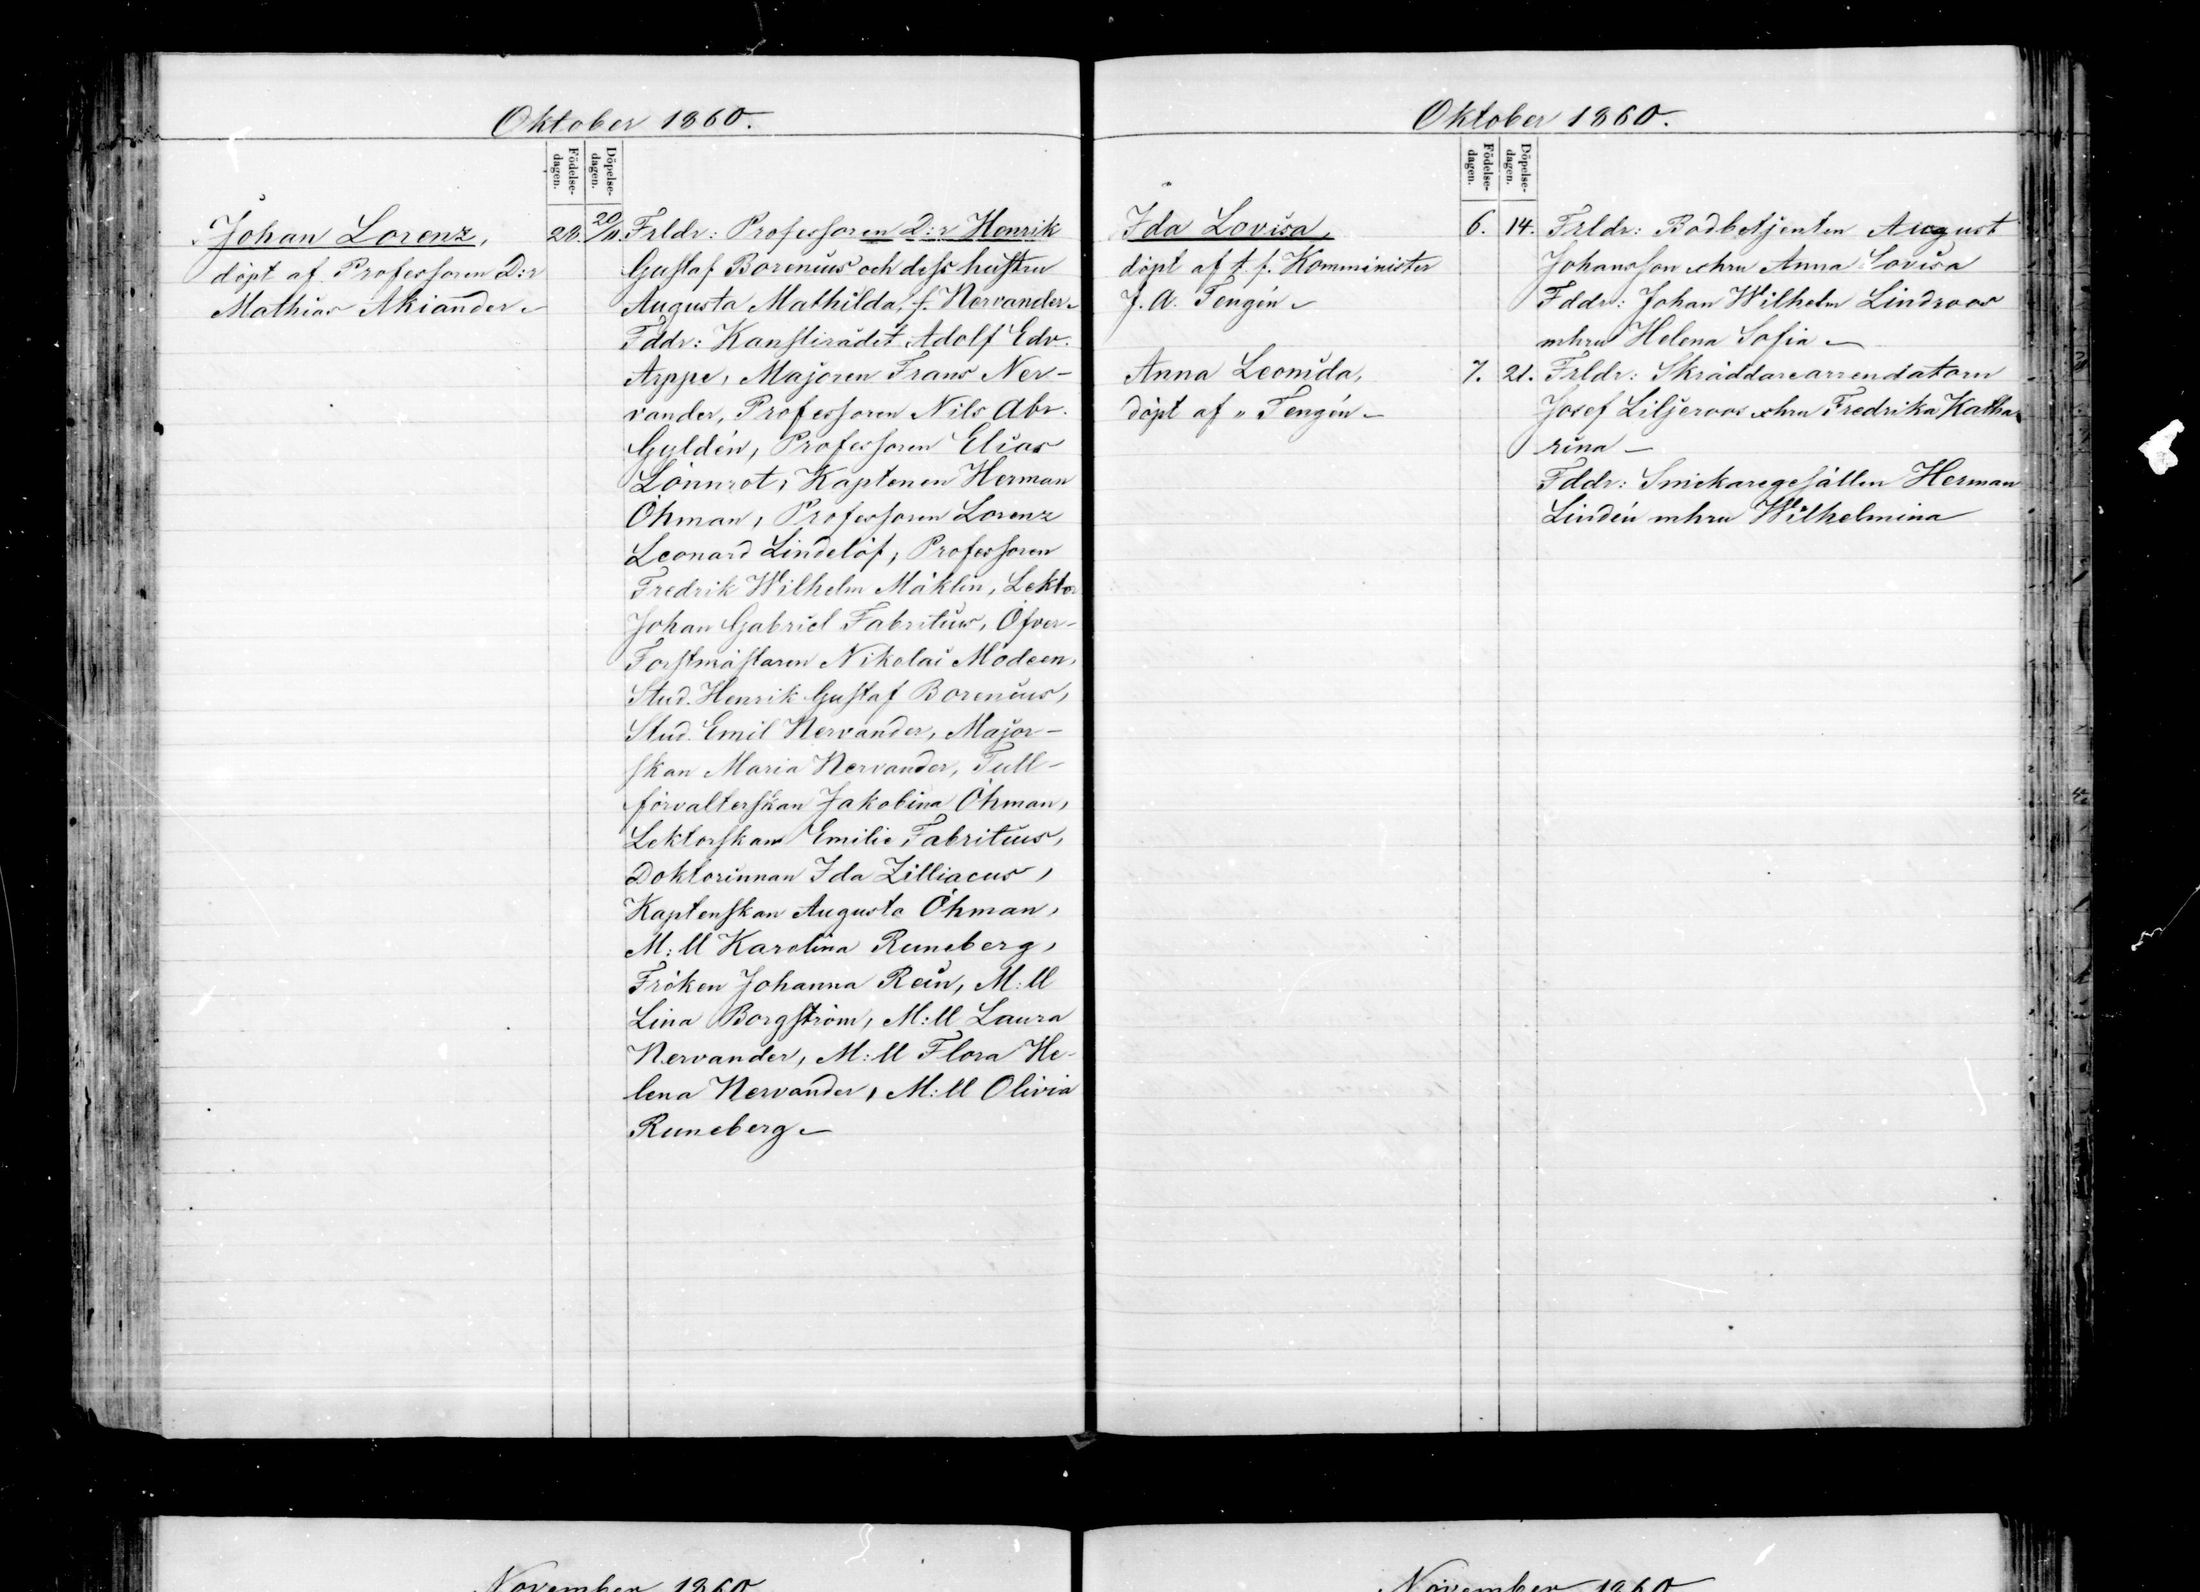 Oktober 1860.
Födelse-
dagen.
Döpelse-
dagen.
Johan Lorenz,
döpt af Professoren D:r
Mathias Akiander
28.
20/11
Frldr: Professoren D:r Henrik
Gustaf Borenius och dess hustru
Augusta Mathilda, f. Nervander
Fddr: Kanslirådet Adolf Edv.
Arppe, Majoren Frans Ner-
vander, Professoren Nils Abr.
Gyldén, Professoren Elias
Lönnrot, Kaptenen Herman
Öhman, Professoren Lorenz
Leonard Lindelöf, Professoren
Fredrik Wilhelm Mäklin, Lektor
Johan Gabriel Fabritius, Öfver-
Forstmästaren Nikolai Modeen,
Stud. Henrik Gustaf Borenius,
Stud. Emil Nervander, Major-
skan Maria Nervander, Tull-
förvalterskan Jakobina Öhman,
Lektorskan Emilie Fabritius,
Doktorinnan Ida Zilliacus,
Kaptenskan Augusta Öhman,
M:ll Karolina Runeberg,
Fröken Johanna Rein, M:ll
Lina Borgström, M:ll Laura
Nervander, M:ll Flora He-
lena Nervander, M:ll Olivia
Runeberg
Oktober 1860.
Födelse-
dagen.
Döpelse-
dagen.
Ida Lovisa,
döpt af t. f. Komminister
J. A. Tengén
6.
14.
Frldr: Bodbetjenten August
Johansson ochru Anna Lovisa
Fddr: Johan Wilhelm Lindroos
mhru Helena Sofia
Anna Leonida,
döpt af " Tengén
7.
21.
Frldr: Skräddarearrendatorn
Josef Liljeroos ohru Fredrika Katha
rina
Fddr: Snickaregesällen Herman
Lindén mhru Wilhelmina
November 1860
November 1860